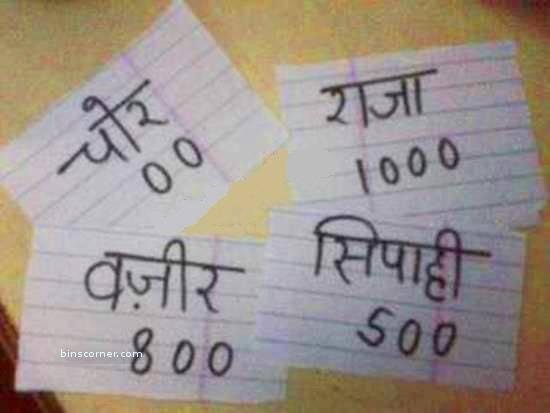 चोर
00
राजा
1000
वज़ीर
800
सिपाही
500
binscorner.com